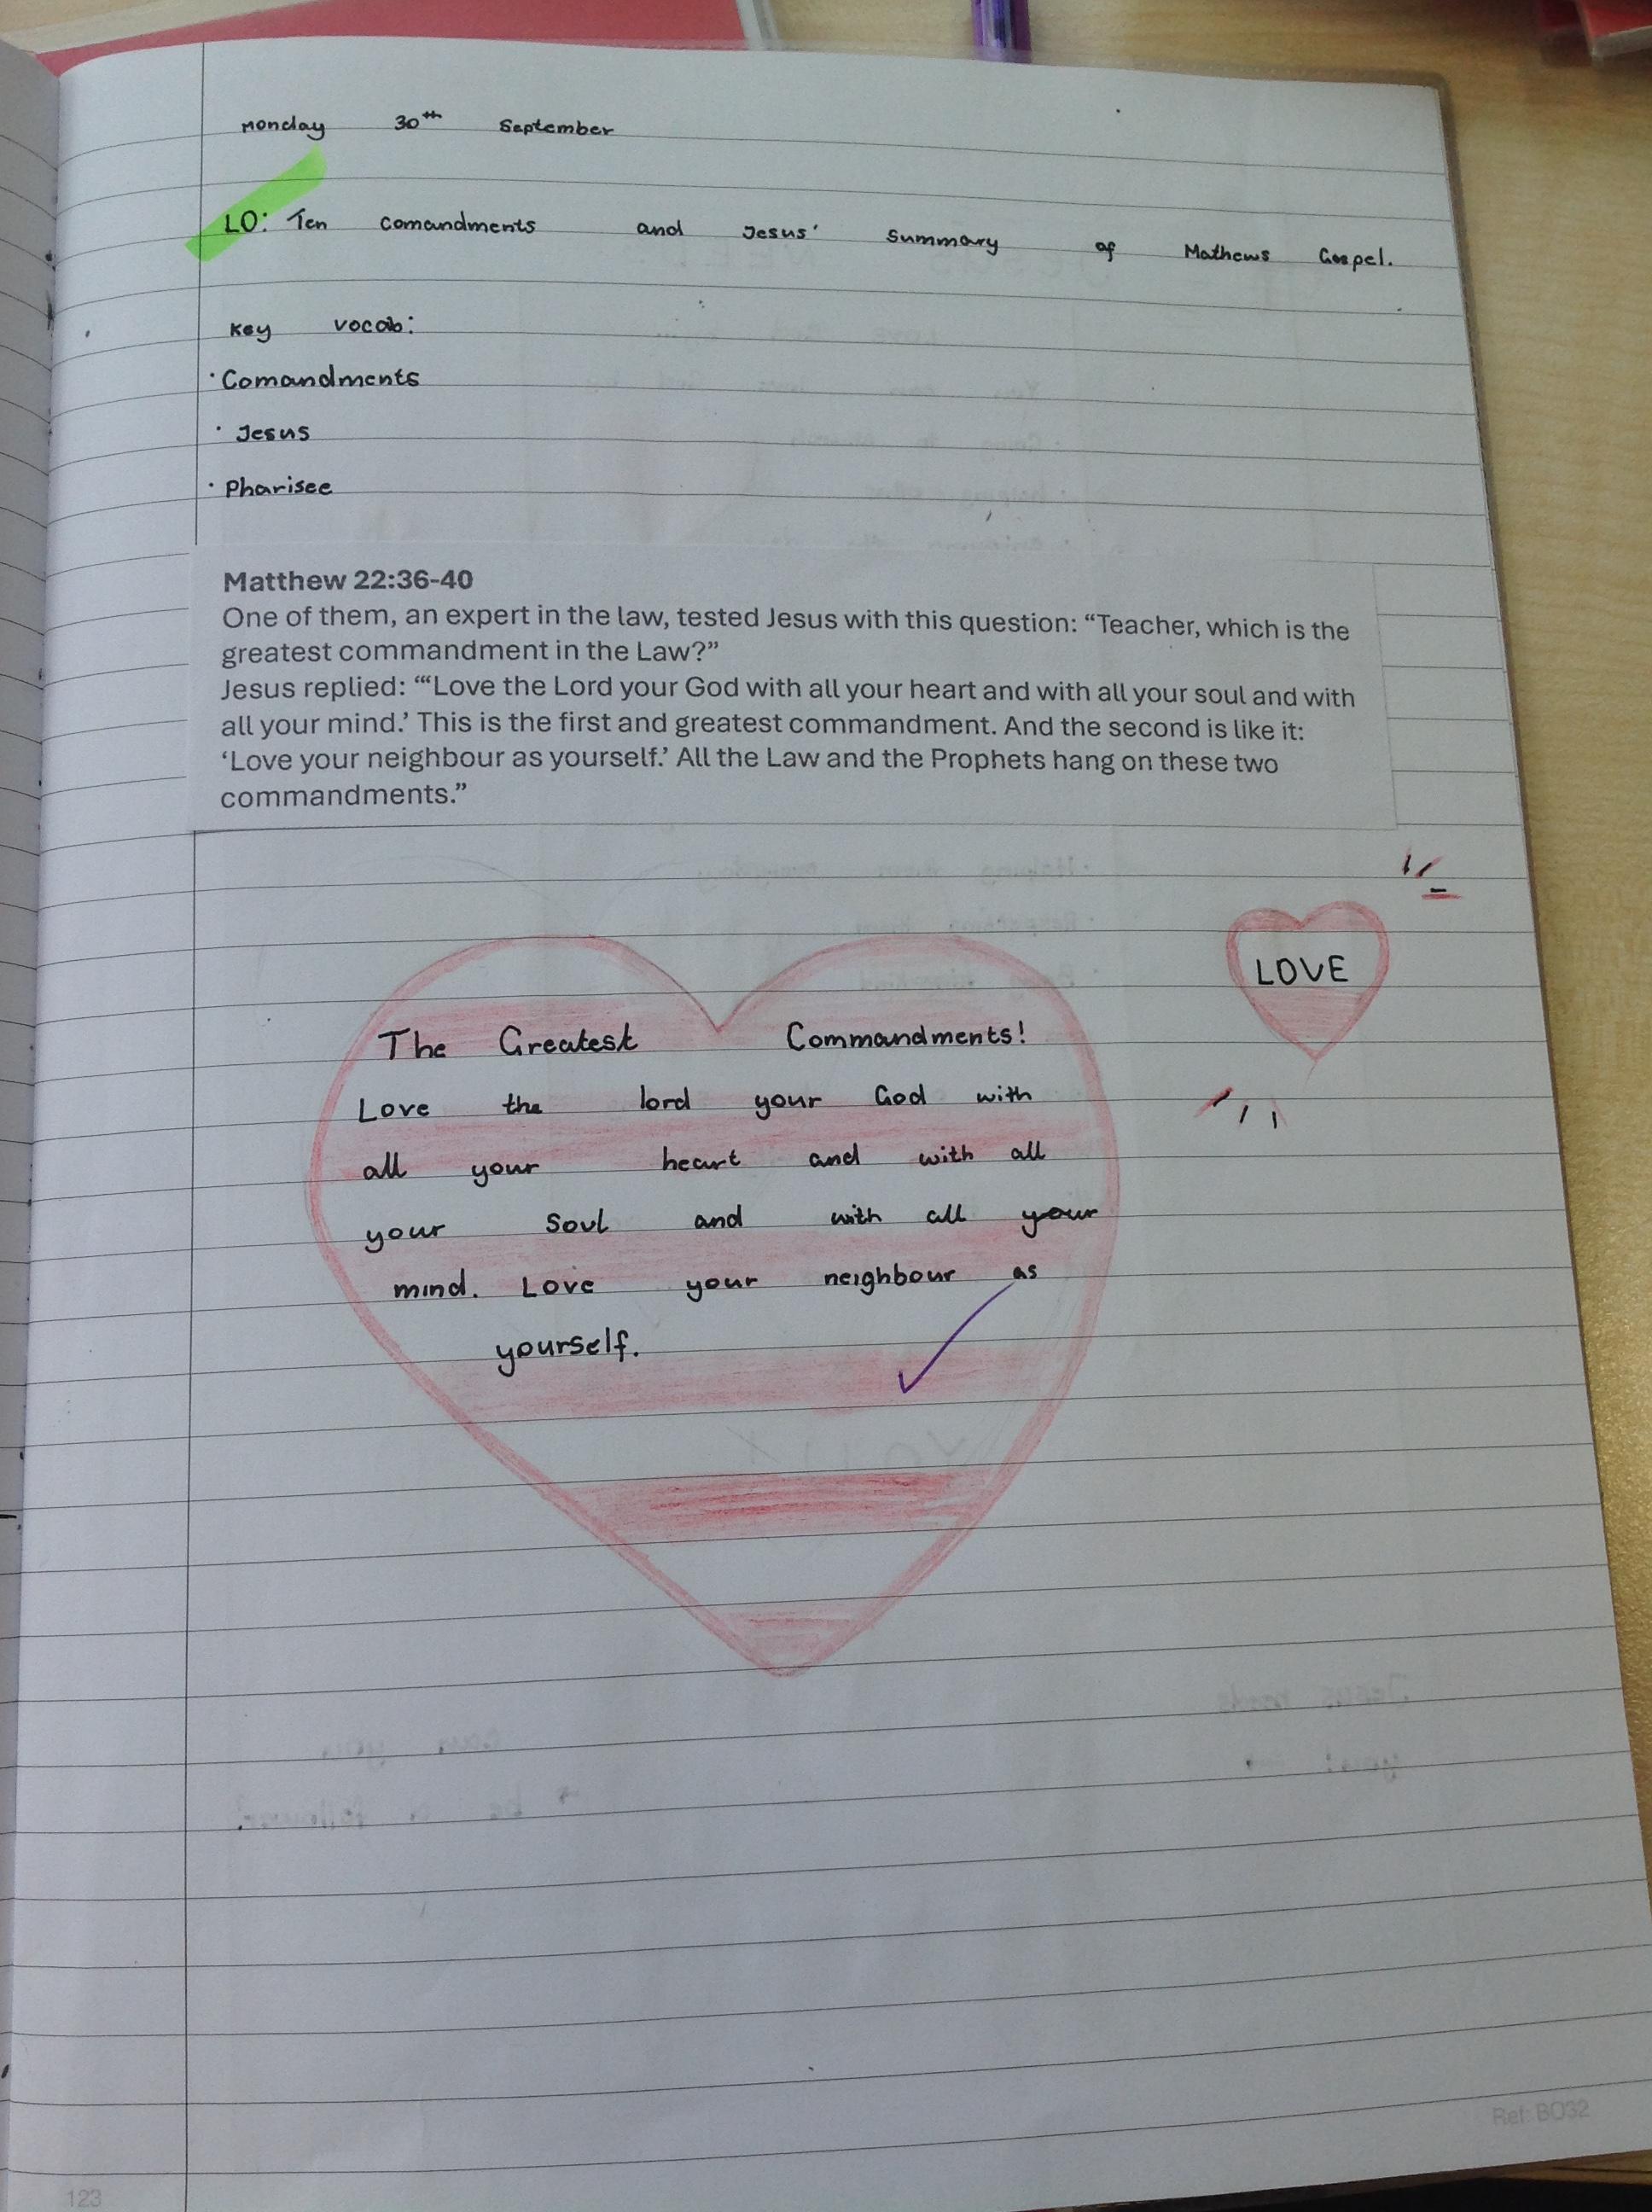 Monday 30th September
LO: Ten comandments and Jesus' Summary of Mathews Gospel.
Key vocab:
· Comandments
· Jesus
· Pharisee
Matthew 22:36-40
One of them, an expert in the law, tested Jesus with this question: “Teacher, which is the
greatest commandment in the Law?”
Jesus replied: “‘Love the Lord your God with all your heart and with all your soul and with
all your mind.’ This is the first and greatest commandment. And the second is like it:
‘Love your neighbour as yourself.’ All the Law and the Prophets hang on these two
commandments.”
LOVE
The Greatest Commandments!
Love the lord your God with
all your heart and with all
your soul and with all your
mind. Love your neighbour as
yourself.
Ref: BO32
123